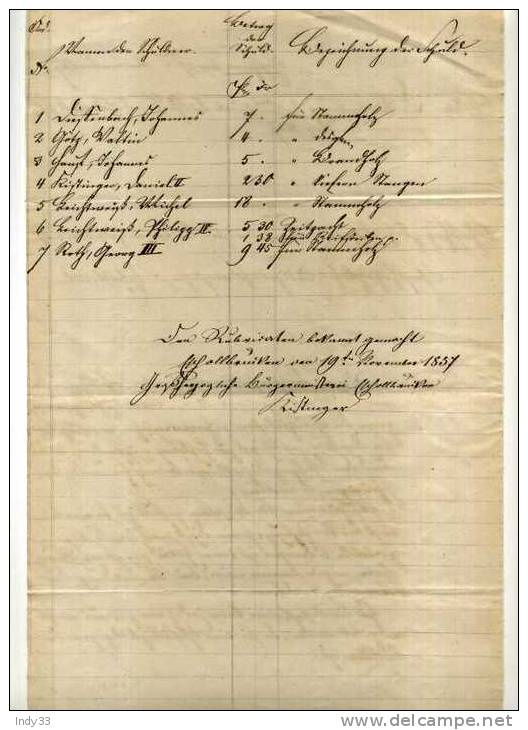 Ord.
Nr.
Namen der Schuldner.
Betrag
der
Schuld.
Bezeichnung der Schuld.
fl. xr
1 Diefenbach, Johannes 7 . für Stammholz
2 Götz, Valtin 4 . " desgl.
3 Hanst, Johannes 5 . " Brandholz
4 Kissinger, Daniel II 2 30 " Stangen
5 Leichtweiß, Michel 18 . " Stammholz
6 Leichtweiß, Philipp IV. 5 30 Zeitpacht
1 38
7 Roth, Georg III 9 45 für Stammholz
Den Rubricaten bekannt gemacht
Eschollbrücken den 19ten November 1857
Großherzogliche Bürgermeisterei Eschollbrücken
Kissinger
Indy33
www.delcampe.net